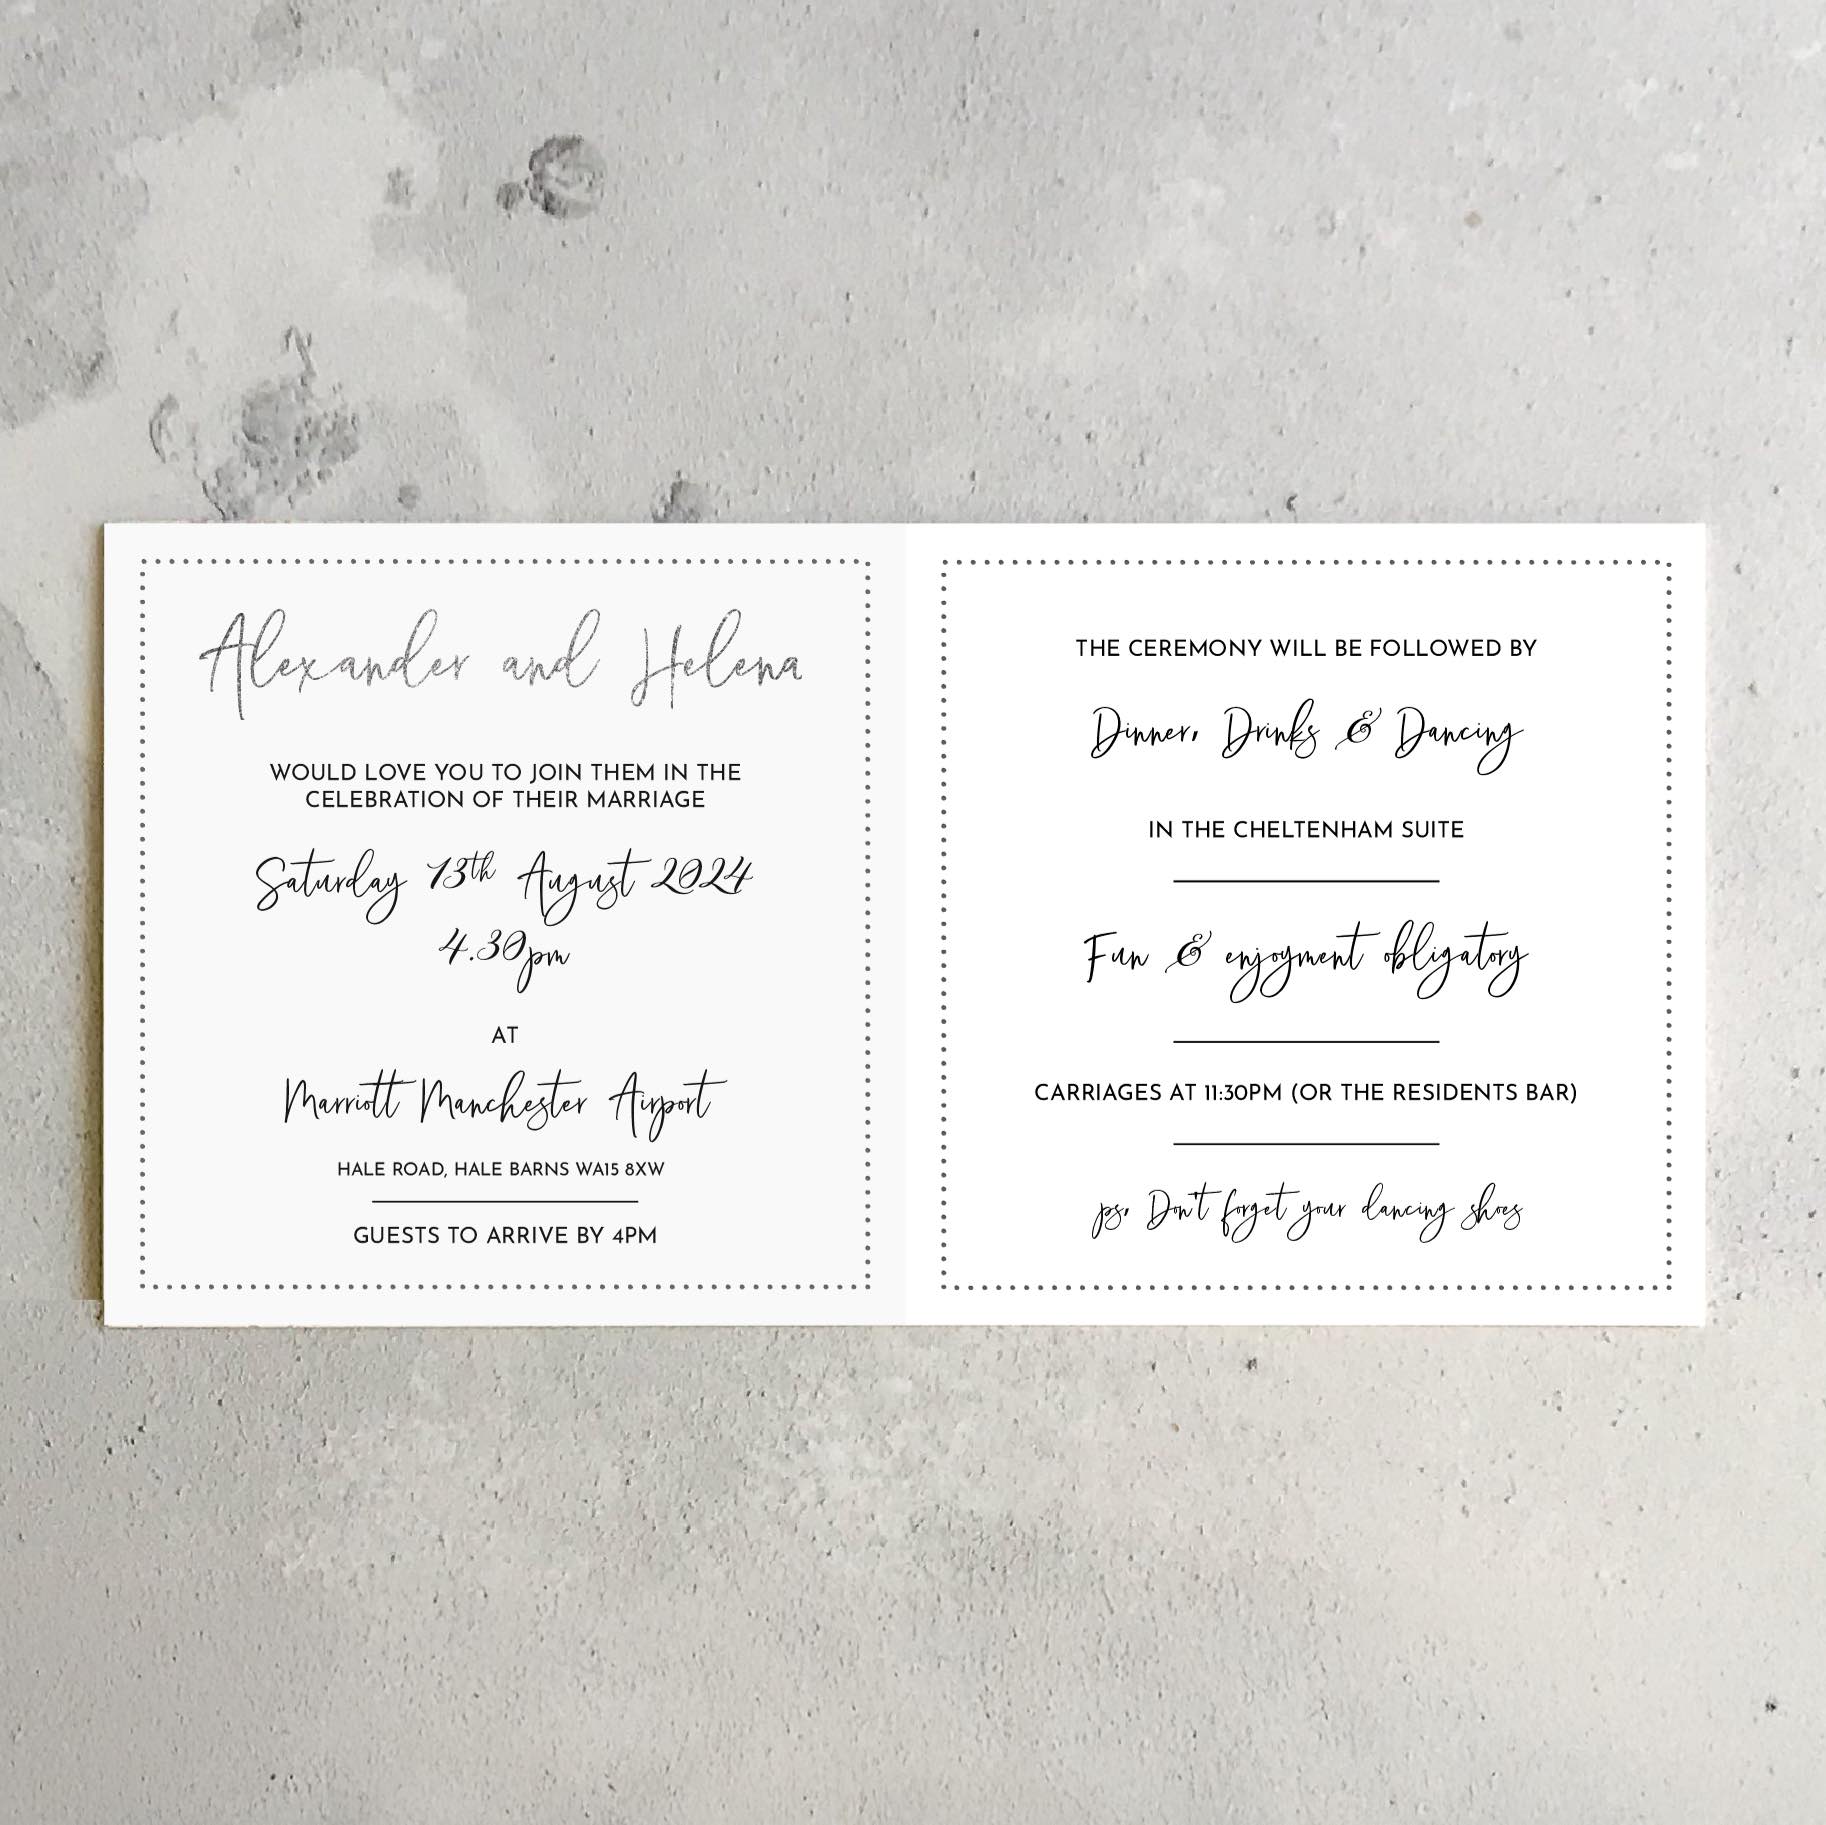 Alexander and Helena
WOULD LOVE YOU TO JOIN THEM IN THE
CELEBRATION OF THEIR MARRIAGE
Saturday 13th August 2024
4.30pm
AT
Marriott Manchester Airport
HALE ROAD, HALE BARNS WA15 8XW
GUESTS TO ARRIVE BY 4PM
THE CEREMONY WILL BE FOLLOWED BY
Dinner, Drinks & Dancing
IN THE CHELTENHAM SUITE
Fun & enjoyment obligatory
CARRIAGES AT 11:30PM (OR THE RESIDENTS BAR)
ps, Don't forget your dancing shoes